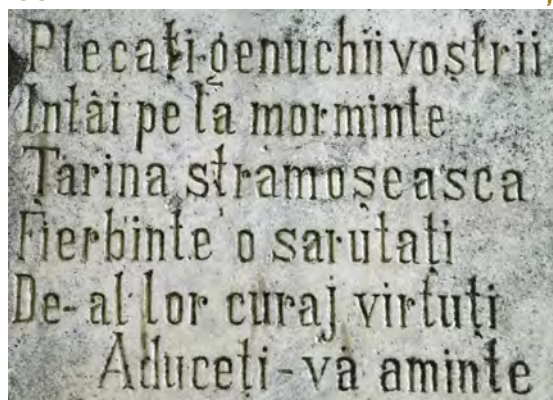 Plecați-genuchii voștrii
Intâi pe la morminte
Țarina stramoșeasca
Fierbinte o sarutați
De-al lor curaj virtuți
Aduceți-vă aminte